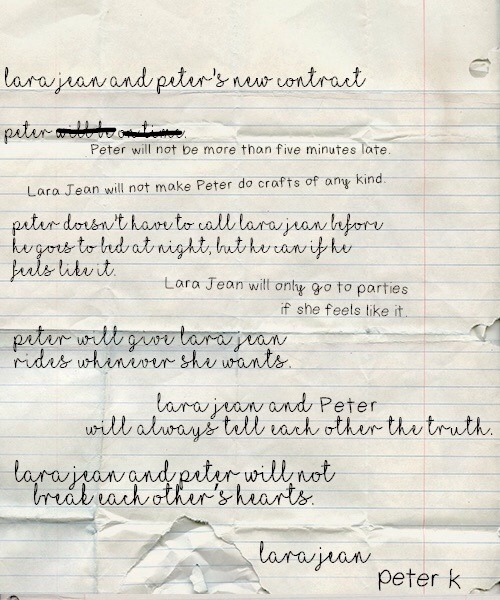 lara jean and peter's new contract
peter will be on time.
Peter will not be more than five minutes late.
Lara Jean will not make Peter do crafts of any kind.
peter doesn't have to call lara jean before
he goes to bed at night, but he can if he
feels like it.
Lara Jean will only go to parties
if she feels like it.
peter will give lara jean
rides whenever she wants.
lara jean and Peter
will always tell each other the truth.
lara jean and peter will not
break each other's hearts.
lara jean
peter k